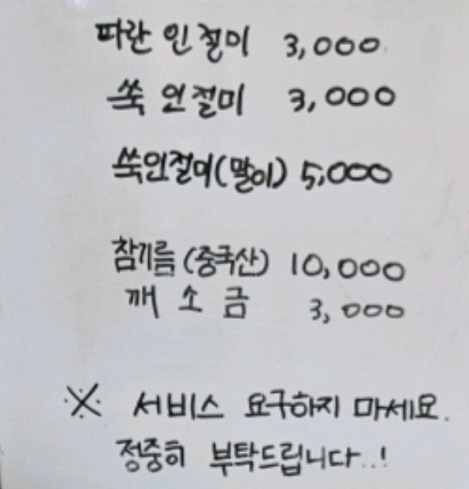 파란 인절미 3,000
쑥 인절미 3,000
쑥인절미(말이) 5,000
참기름 (중국산) 10,000
깨 소 금 3,000
※ 서비스 요구하지 마세요.
정중히 부탁드립니다..!